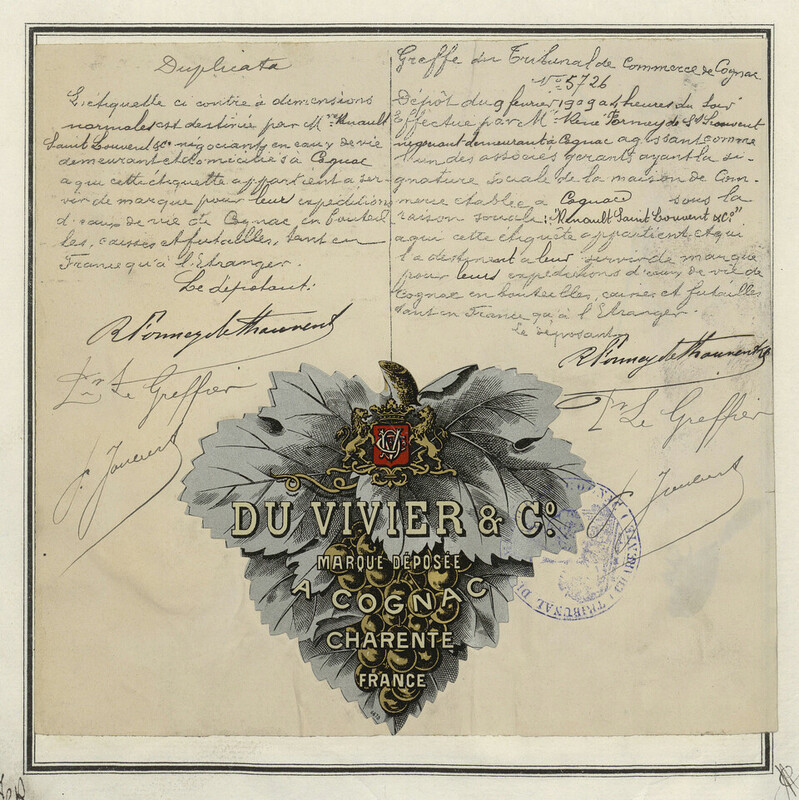 Duplicata
L'étiquette ci contre à dimensions
normales est destinée par M. Renault
Saint Louvent & Co négociants en eaux de vie
demeurant et domiciliés à Cognac
a qui cette étiquette appartient a ser-
vir de marque pour leurs expéditions
d'eaux de vie de Cognac en bouteil
les, caisses et futailles, tant en
France qu'à l'Etranger.
Le déposant:
Pr Le Greffier
Greffe du Tribunal de Commerce de Cognac
No 5726
Dépôt du 9 février 1909 à heures du soir
Effectué par M. René
négociant demeurant à Cognac agissant comme
l'un des associés gerants ayant la si-
gnature sociale de la maison de Com-
merce établie à Cognac sous la
raison sociale: "Renault Saint Louvent & Co"
a qui cette étiquette appartient et qui
l'a destinent a leur servir de marque
pour leurs expéditions d'eaux de vie de
Cognac en bouteilles, caisses et futailles
tant en France qu'à l'Etranger.
Le déposant
Pr Le Greffier
DU VIVIER & Co.
MARQUE DÉPOSÉE
A COGNAC
CHARENTE
FRANCE
TRIBUNAL DE